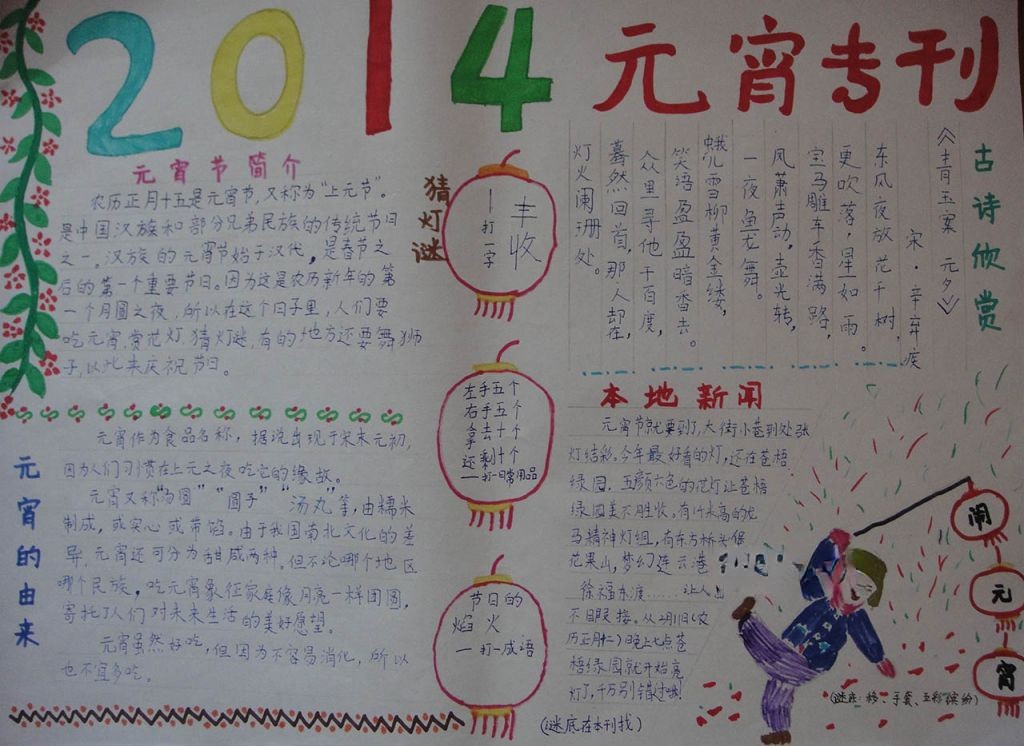 2014
元宵专刊
元宵节简介
农历正月十五是元宵节,又称为“上元节”。
是中国汉族和部分兄弟民族的传统节日
之一。汉族的元宵节始于汉代,是春节之
后的第一个重要节日。因为这是农历新年的第
一个月圆之夜,所以在这个日子里,人们要
吃元宵,赏花灯,猜灯谜,有的地方还要舞狮
子,以此来庆祝节日。
元宵的由来
元宵作为食品名称,据说出现于宋末元初,
因为人们习惯在上元之夜吃它的缘故。
元宵又称“汤圆”“圆子”“汤丸”等,由糯米
制成,或实心或带馅。由于我国南北文化的差
异,元宵还可分为甜咸两种。但不论哪个地区
哪个民族,吃元宵象征家庭像月亮一样团圆,
寄托了人们对未来生活的美好愿望。
元宵虽然好吃,但因为不容易消化,所以
也不宜多吃。
猜灯谜
丰收
—打一字
左手五个
右手五个
拿去十个
还剩十个
—打一日常用品
节日的
焰火
—打一成语
(谜底在本刊找)
古诗欣赏
《青玉案 元夕》
宋·辛弃疾
东风夜放花千树,
更吹落,星如雨。
宝马雕车香满路,
凤萧声动,壶光转,
一夜鱼龙舞。
蛾儿雪柳黄金缕,
笑语盈盈暗香去。
众里寻他千百度,
蓦然回首,那人却在,
灯火阑珊处。
本地新闻
元宵节就要到了,大街小巷到处张
灯结彩。今年最好看的灯,还在苍梧
绿园。五颜六色的花灯让苍梧
绿园美不胜收。有14米高的龙
马精神灯组,有东方桥头堡
花果山,梦幻连云港
徐福东渡……让人
不暇接。从2月11日(农
历正月十二)晚上七点苍
梧绿园就开始亮
灯了,千万别错过哦!
闹
元
宵
(谜底:移、手套、五彩缤纷)